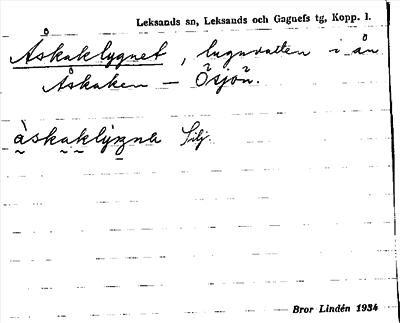 Leksands sn, Leksands och Gagnefs tg, Kopp. l.
Åskaklygnet, lugnvatten i ån
Åskaken — Ösjön.
àskaklýgnə Silj.
Bror Lindén 1934